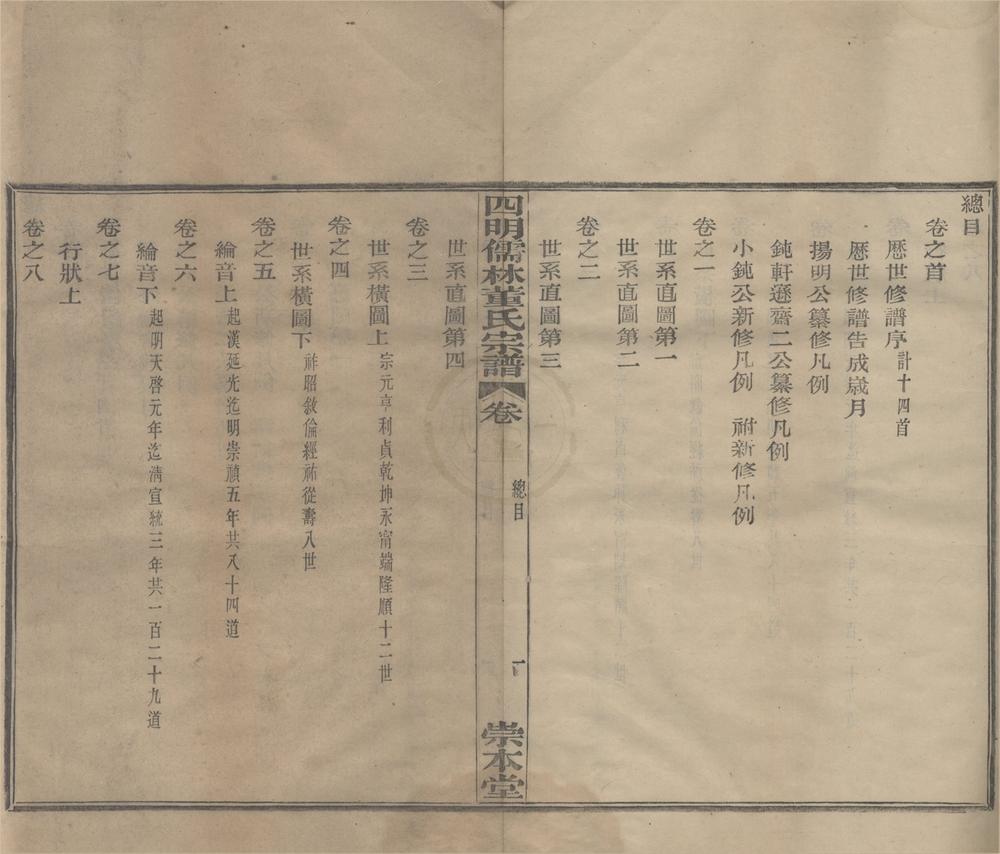 總目
卷之首
歷世修譜序計十四首
歷世修譜告成歲月
揚明公纂修凡例
鈍軒遜齋二公纂修凡例
小鈍公新修凡例 附新修凡例
卷之一
世系直圖第一
世系直圖第二
卷之二
世系直圖第三
四明儒林董氏宗譜 卷 總目 一 崇本堂
世系直圖第四
卷之三
世系橫圖上宗元亨利貞乾坤永甯端隆順十二世
卷之四
世系橫圖下祥昭敘倫經祐從壽八世
卷之五
綸音上起漢延光迄明崇禎五年共八十四道
卷之六
綸音下起明天啓元年迄淸宣統三年共一百二十九道
卷之七
行狀上
卷之八